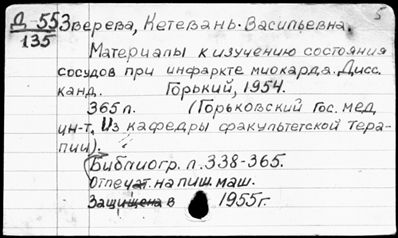 5
Д 55 Зверева, Кетевань Васильевна.
135
Материалы к изучению состояния
сосудов при инфаркте миокарда. Дисс.
канд. Горький, 1954.
365 л. (Горьковский Гос. мед.
ин-т. Из кафедры факультетской тера-
пии).
Библиогр. л. 338-365.
Отпечат. на пиш. маш.
Защищена в 1955г.